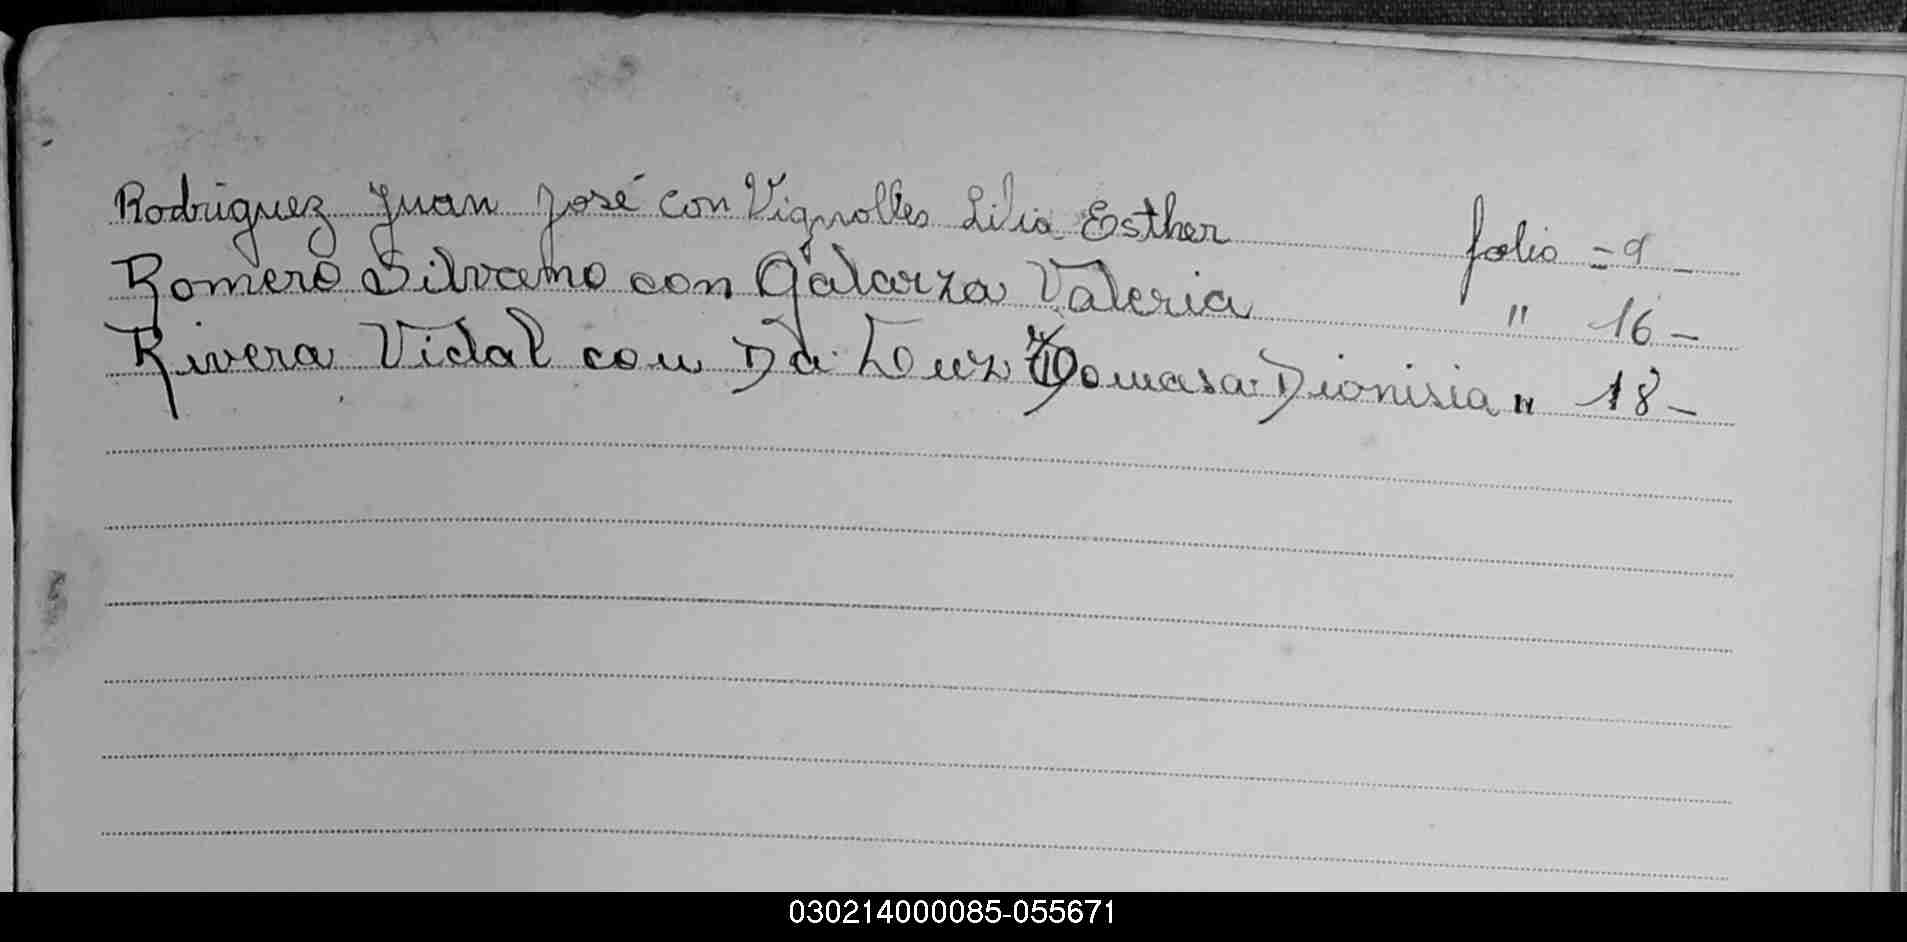 Rodriguez Juan José con Vignolles Lilia Esther folio = 9 _
Romero Silvano con Galarza Valeria " 16 _
Rivera Vidal con Da Louz Tomasa Dionisia " 18 _
030214000085-055671